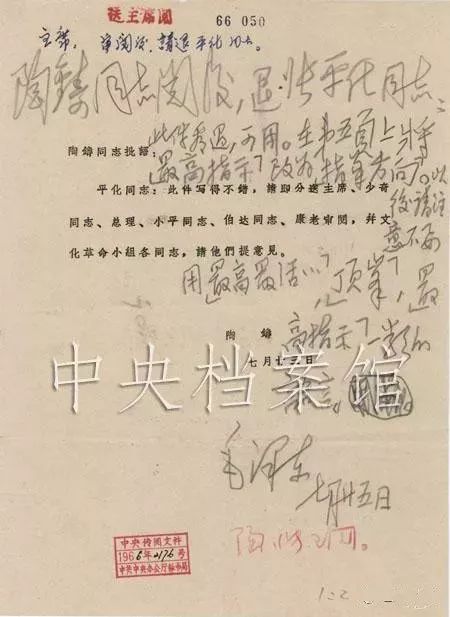 送主席阅
66 050
主席：审阅后，請退平化同志。
陶鑄同志阅后，退张平化同志：
此件看过，可用。在第五頁上将
陶鑄同志批語：
「最高指示」改为「指導方向」。以
平化同志：此件写得不錯，請即分送主席、少奇
后請注
同志、总理、小平同志、伯达同志、康老审閱，幷文
意不要
化革命小組各同志，請他們提意見。
用「最高最活…」，「頂峯」，「最
陶 鑄
高指示」一类的
七月廿三日
中央档案馆
毛泽东
七月廿五日
陶
阅。
中央传阅文件
1966年2176号
中共中央办公厅秘书局